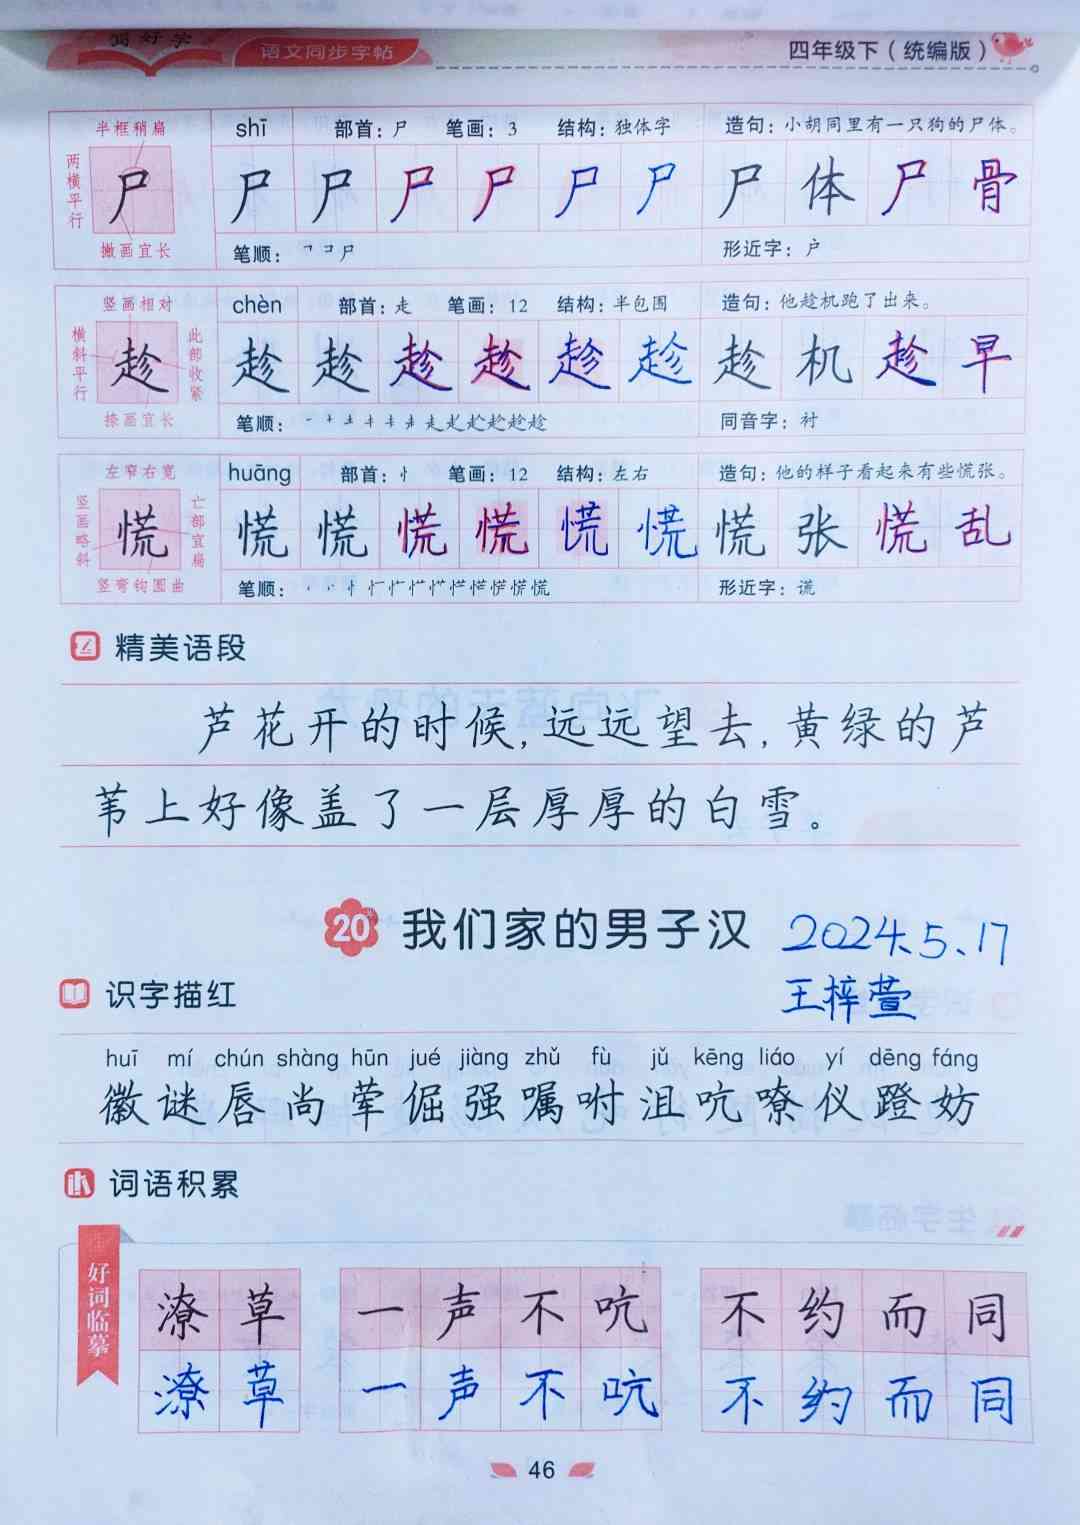 写好字
语文同步字帖
四年级下（统编版）
半框稍扁
两横平行
撇画宜长
shī 部首：尸 笔画：3 结构：独体字 造句：小胡同里有一只狗的尸体。
尸 尸 尸 尸 尸 尸 尸 尸体 尸骨
笔顺： 形近字：户
竖画相对
横斜平行
此部收紧
捺画宜长
chèn 部首：走 笔画：12 结构：半包围 造句：他趁机跑了出来。
趁 趁 趁 趁 趁 趁 趁 趁机 趁早
笔顺： 同音字：衬
左窄右宽
竖画略斜
亡部宜扁
竖弯钩圆曲
huāng 部首：忄 笔画：12 结构：左右 造句：他的样子看起来有些慌张。
慌 慌 慌 慌 慌 慌 慌 慌张 慌乱
笔顺： 形近字：谎
精美语段
芦花开的时候，远远望去，黄绿的芦
苇上好像盖了一层厚厚的白雪。
20* 我们家的男子汉
2024.5.17
王梓萱
识字描红
huī mí chún shàng hūn jué jiàng zhǔ fù jǔ kēng liáo yí dēng fáng
徽谜唇尚荤倔强嘱咐沮吭嘹仪蹬妨
词语积累
好词临摹
潦草 一声不吭 不约而同
潦草 一声不吭 不约而同
46